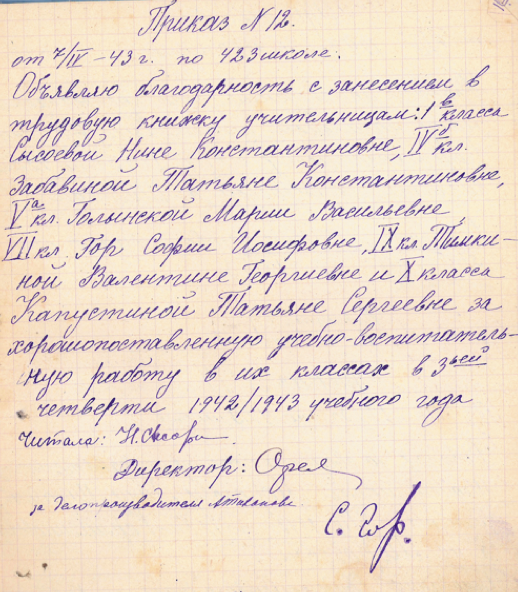 Приказ N 12.
от 7/IV – 43 г. по 423 школе.
Объявляю благодарность с занесением в
трудовую книжку учительницам: 1в класса
Сысоевой Нине Константиновне, IVб кл.
Забавиной Татьяне Константиновне,
Vа кл. Голынской Марии Васильевне,
VII кл. Гор Софии Иосифовне, IX кл. Тимки-
ной Валентине Георгиевне и X класса
Капустиной Татьяне Сергеевне за
хорошопоставленную учебно-воспитатель-
ную работу в их классах в 3ьей
четверти 1942/1943 учебного года
Читала: Н.
Директор:
за делопроизводителя
С. Гор.